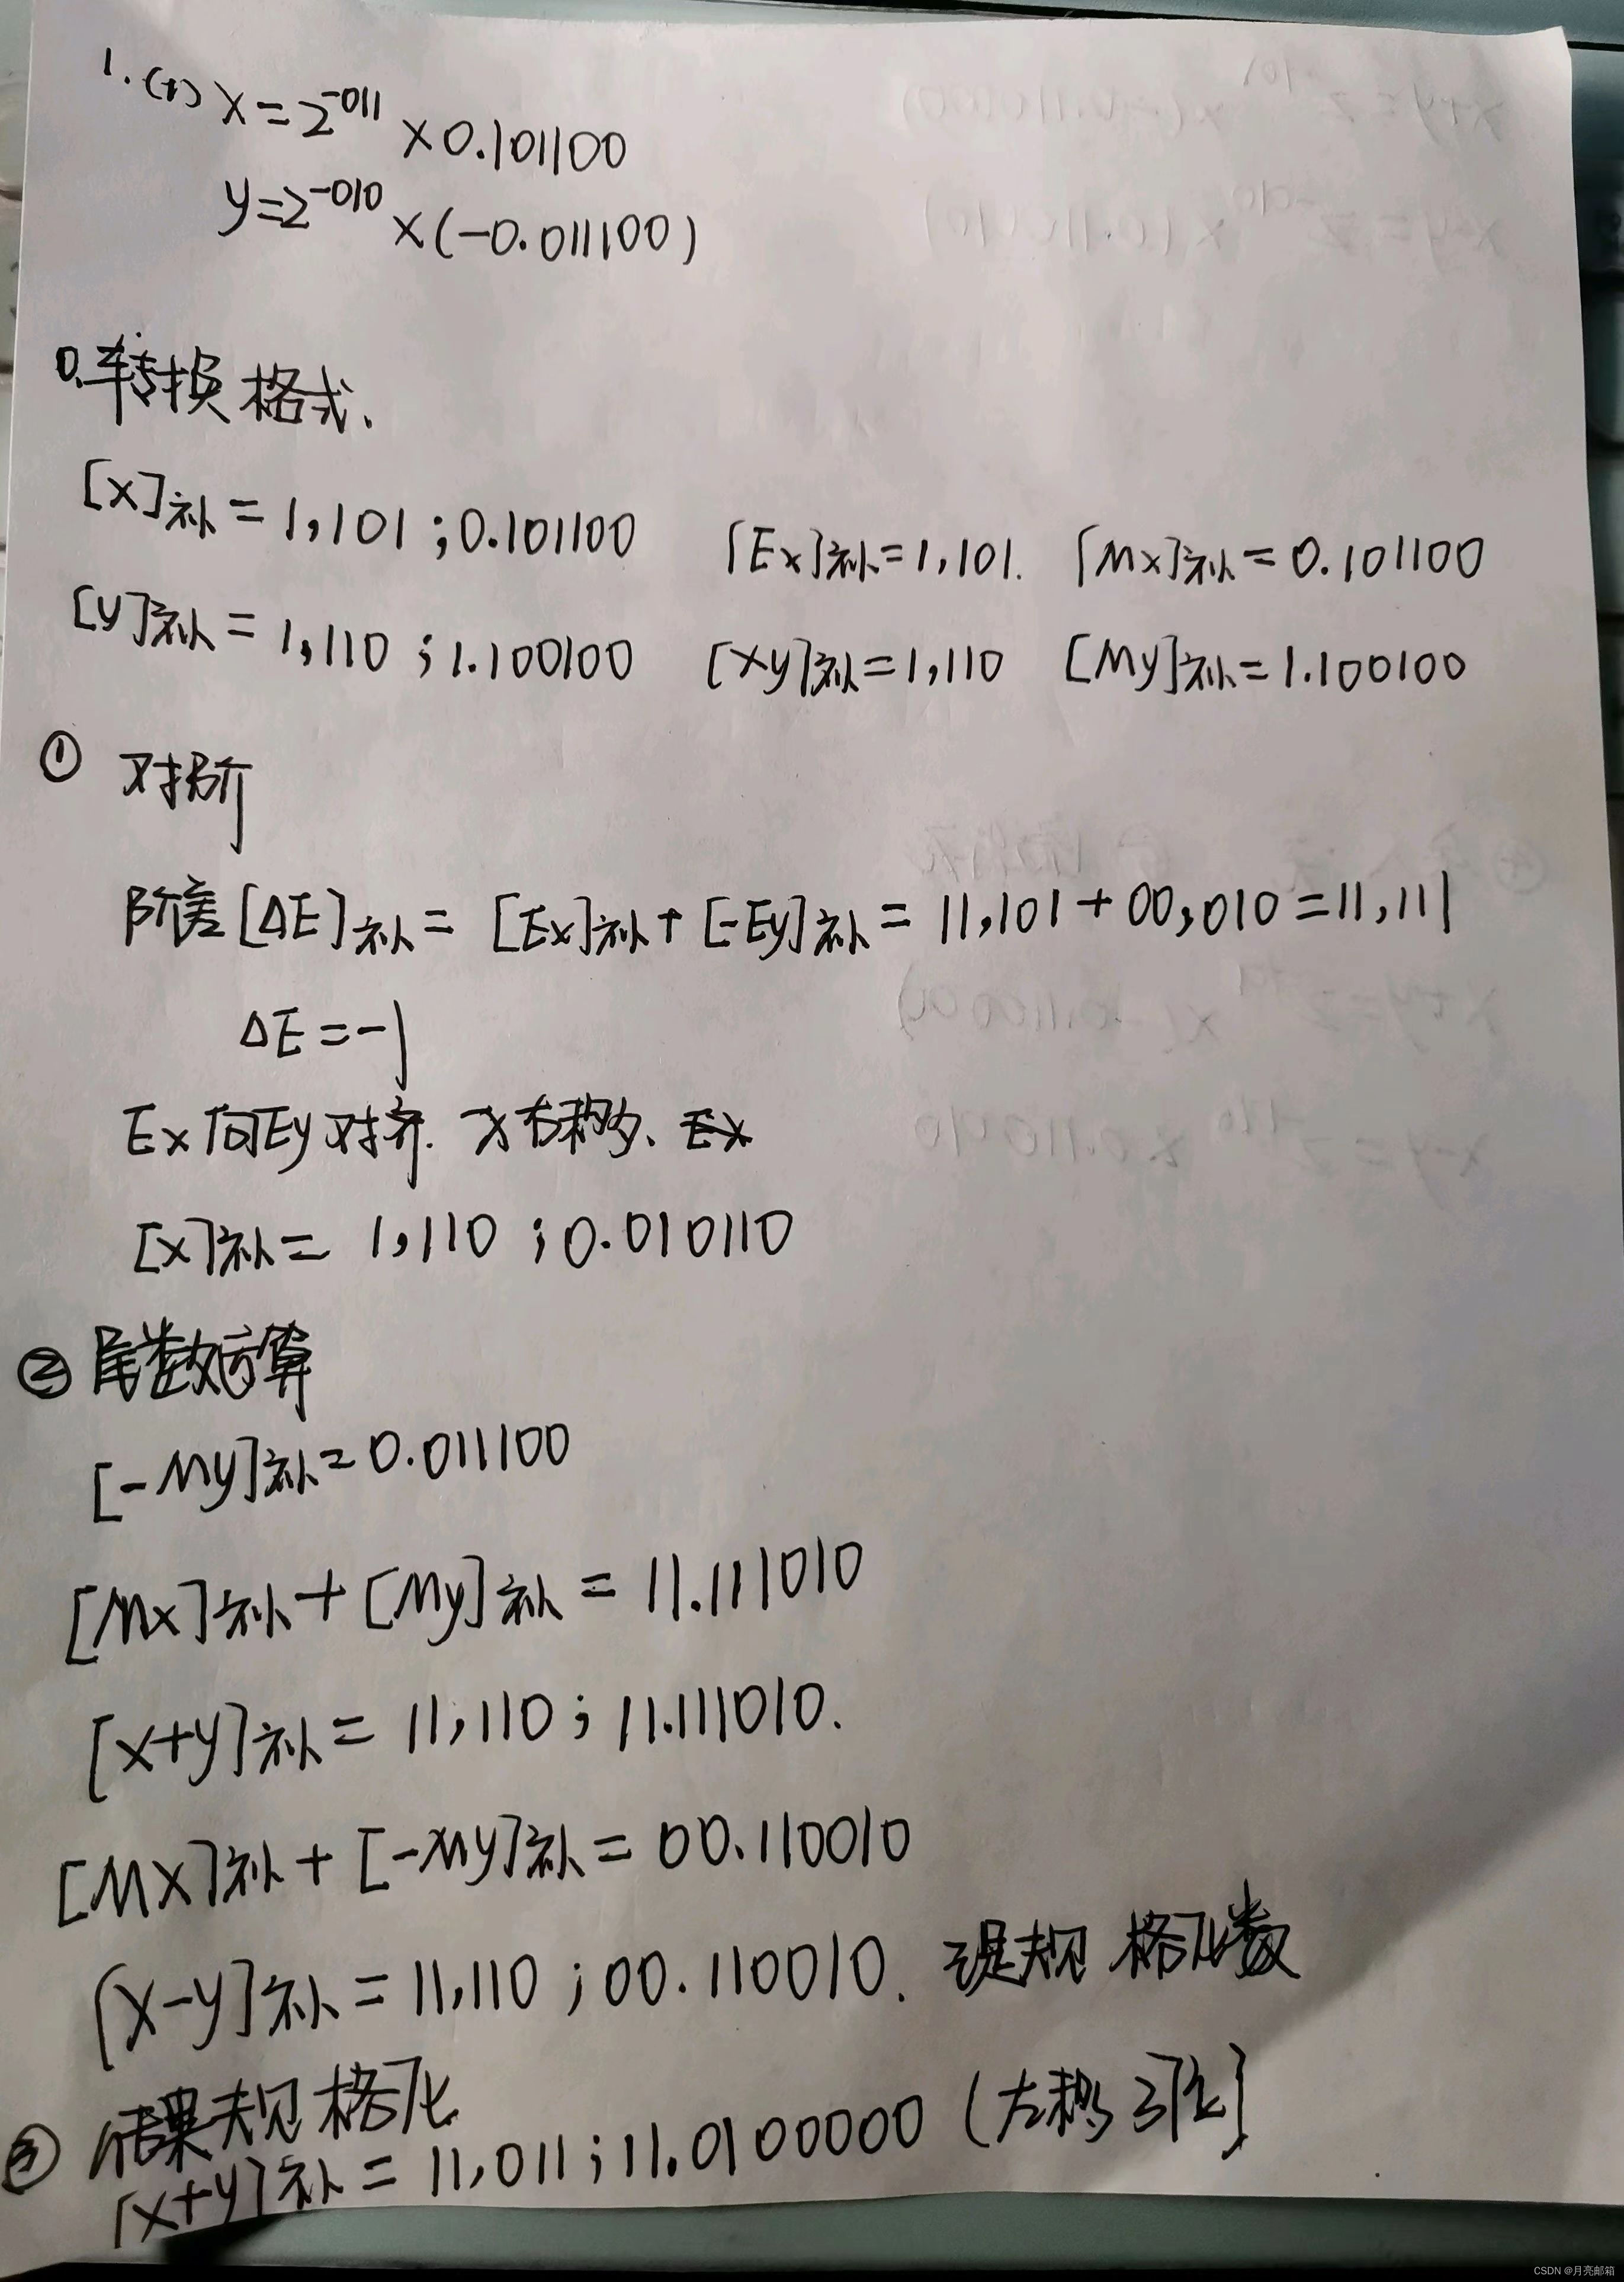 1.(1) x=2^-011 ×0.101100
y=2^-010 ×(-0.011100)
0.转换格式、
[x]补=1,101;0.101100 [Ex]补=1,101. [Mx]补=0.101100
[y]补=1,110;1.100100 [xy]补=1,110 [My]补=1.100100
① 对阶
阶差[ΔE]补=[Ex]补+[-Ey]补=11,101+00,010=11,111
ΔE=-1
Ex向Ey对齐. x右移、Ex
[x]补=1,110;0.010110
② 尾数运算
[-My]补=0.011100
[Mx]补+[My]补=11.111010
[x+y]补=11,110;11.111010.
[Mx]补+[-My]补=00.110010
[x-y]补=11,110;00.110010. 已是规格化数
③ 结果规格化
[x+y]补=11,011;11.0100000(左移3位]
CSDN @月亮邮箱